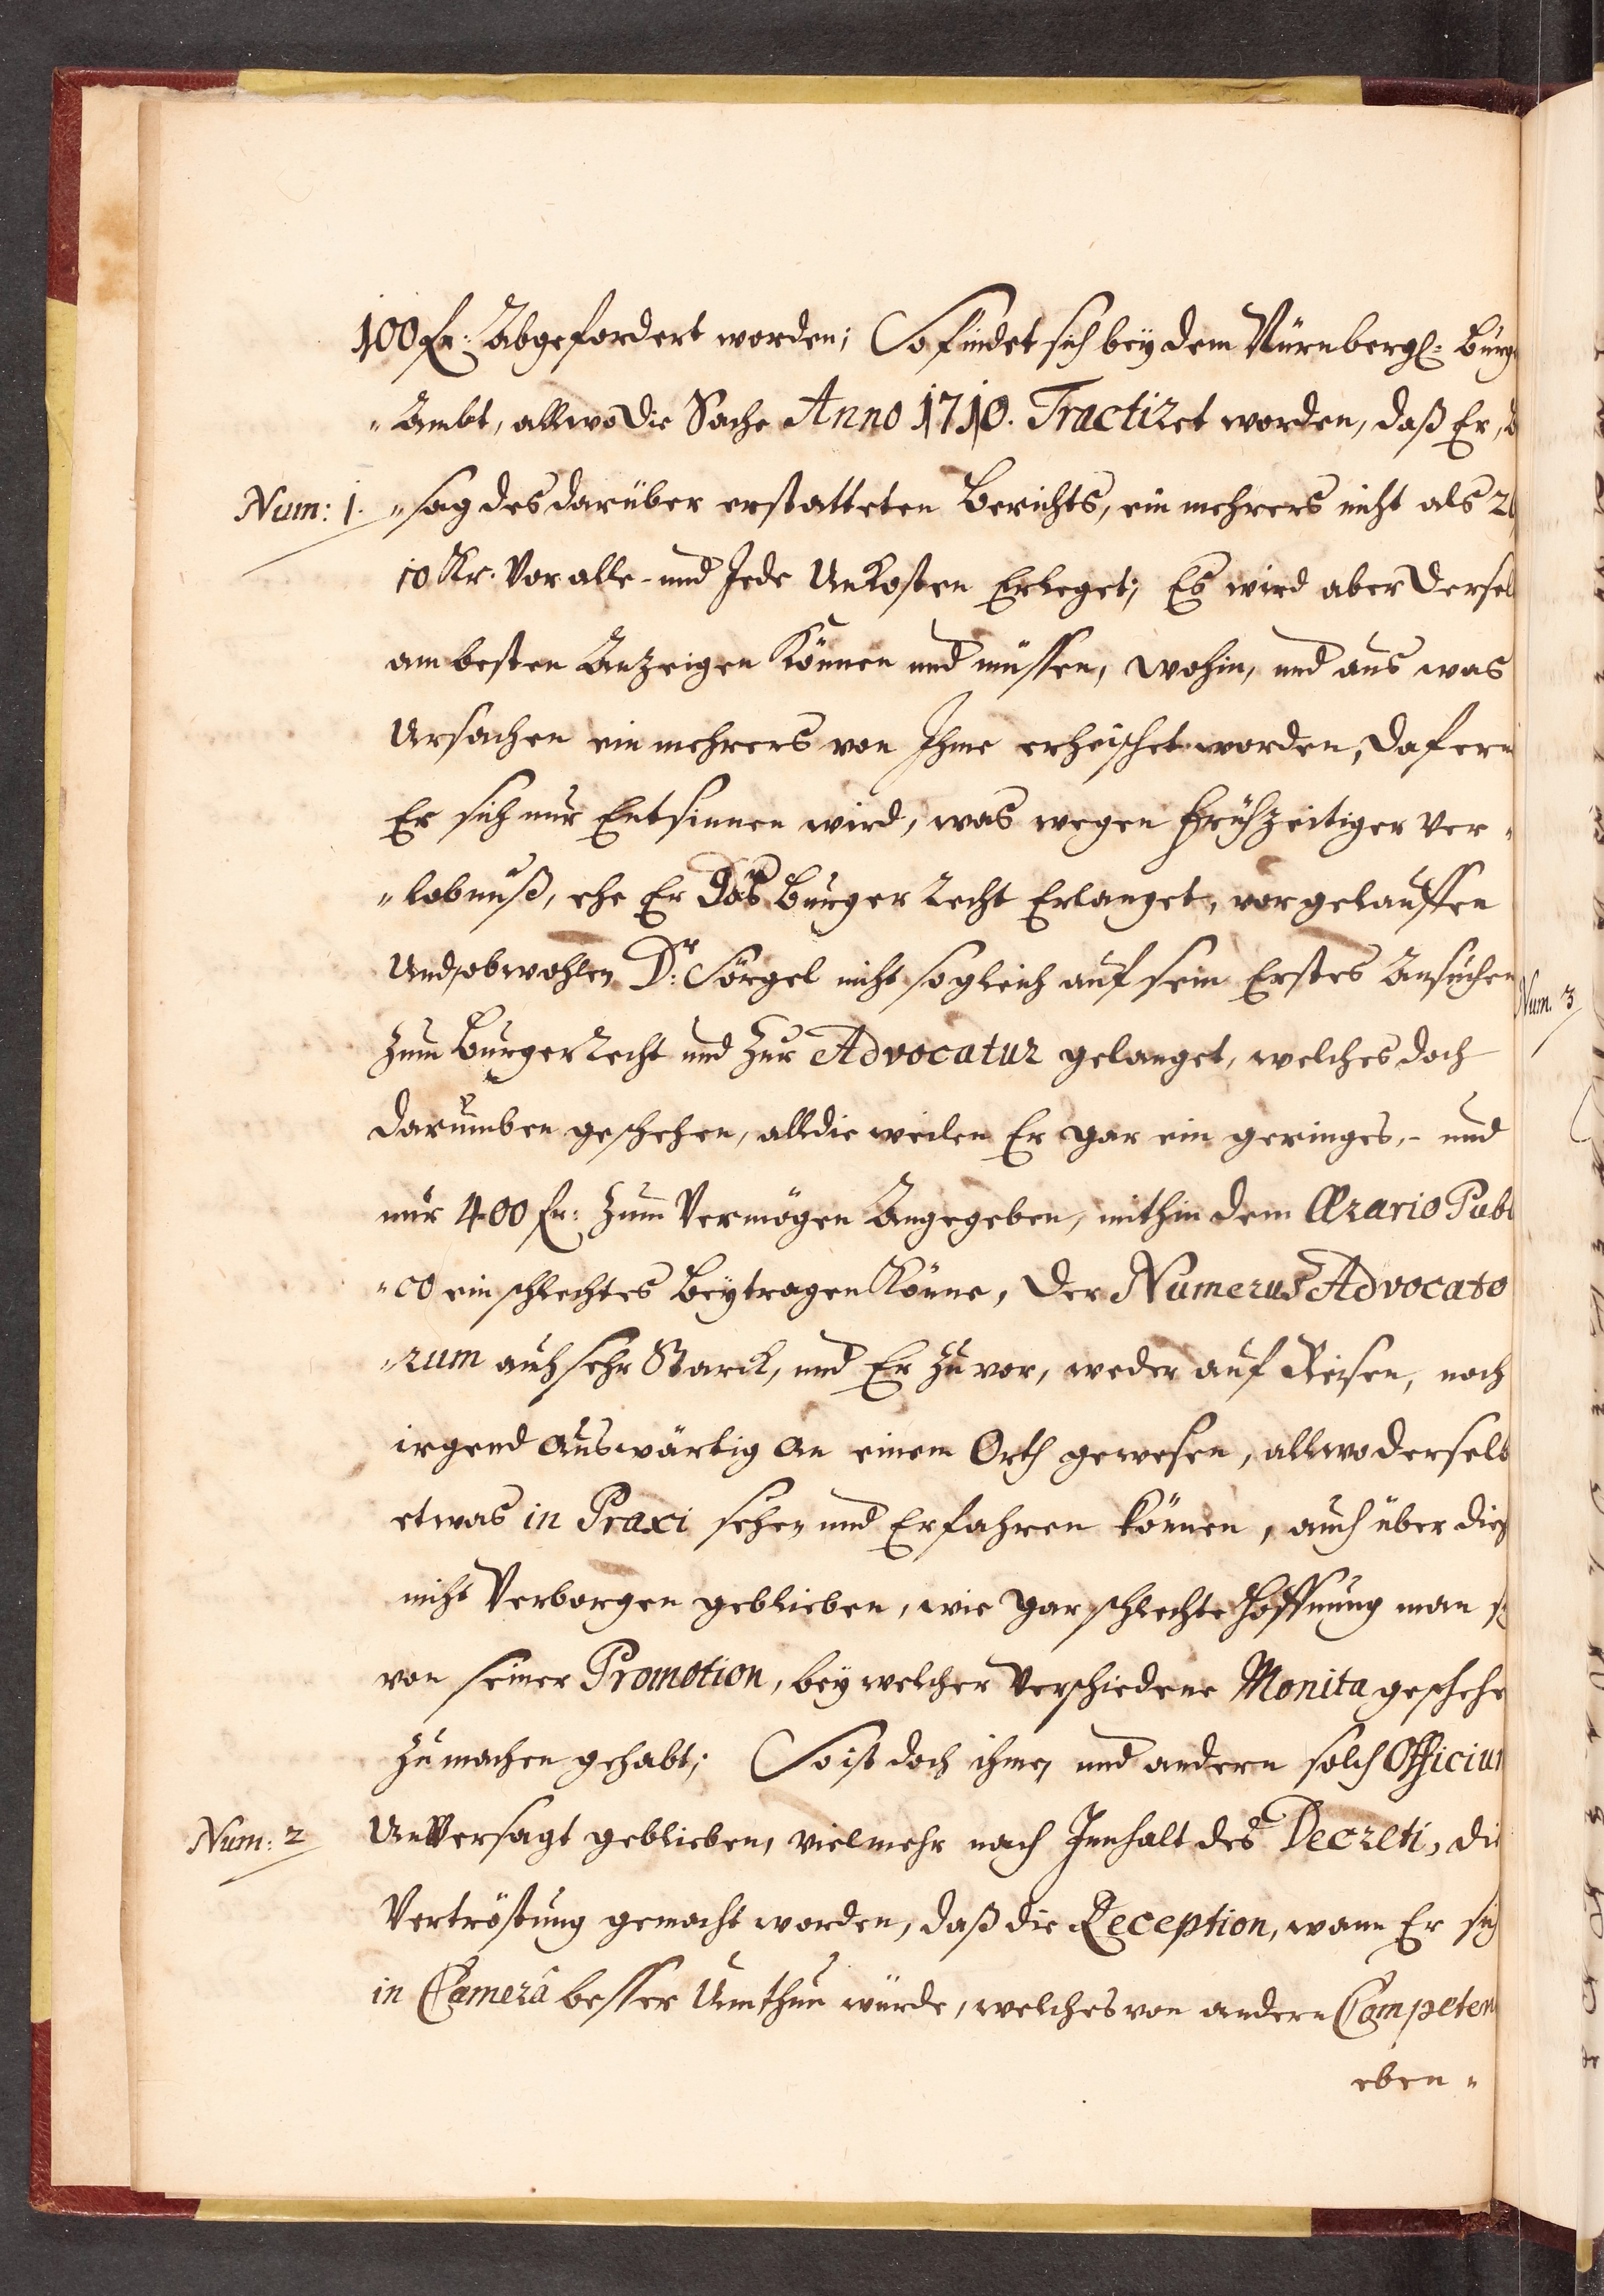 100 fl: Abgefordert worden; So findet sich bey dem Nürnbergl: Burg
"Ambt, allwo die Sache Anno 1710. Tractiret worden, daß Er,
Num: 1. "sag des darüber erstatteten Berichts, ein mehrers nicht als
10 Kr. Vor alle- und Jede Unkosten Erleget; Es wird aber Dersel
am besten Anzeigen Können und müssen, wohin, und aus was
Ursachen ein mehrers von Ihme erheischet worden, Dafern
Er sich nur Entsinnen wird, was wegen frühzeitiger Ver"
"lobnuß, ehe Er das Burger Recht Erlanget, vorgelauffen
Und, obwohlen Dr: Sörgel nicht sogleich auf sein Erstes Ansuchen
Zum Burger Recht und Zur Advocatur gelanget, welches doch
darumben geschehen, alldieweilen Er gar ein geringes,- und
nur 400 fl: Zum Vermögen Angegeben, mithin dem Ærario Publ
"co ein schlechtes Beytragen Könne, Der Numerus Advocato
"rum auch sehr Starck, und Er Zuvor, weder auf Reisen, noch
irgend Auswärtig An einem Orth gewesen, allwo derselb
etwas in Praxi sehen und Erfahren können, auch über dieß
nicht Verborgen geblieben, wie gar schlechte Hoffnung man
von seiner Promotion, bey welcher Verschiedene Monita geschehe
Zu machen gehabt; So ist doch ihme, und andern solch Officium
Num: 2 UnVersagt geblieben, vielmehr nach Innhalt des Decreti, die
Vertröstung gemacht worden, daß die Reception, wann Er sich
in Camerâ besser Umthun würde, welches von andern Competen
eben"
Num. 3